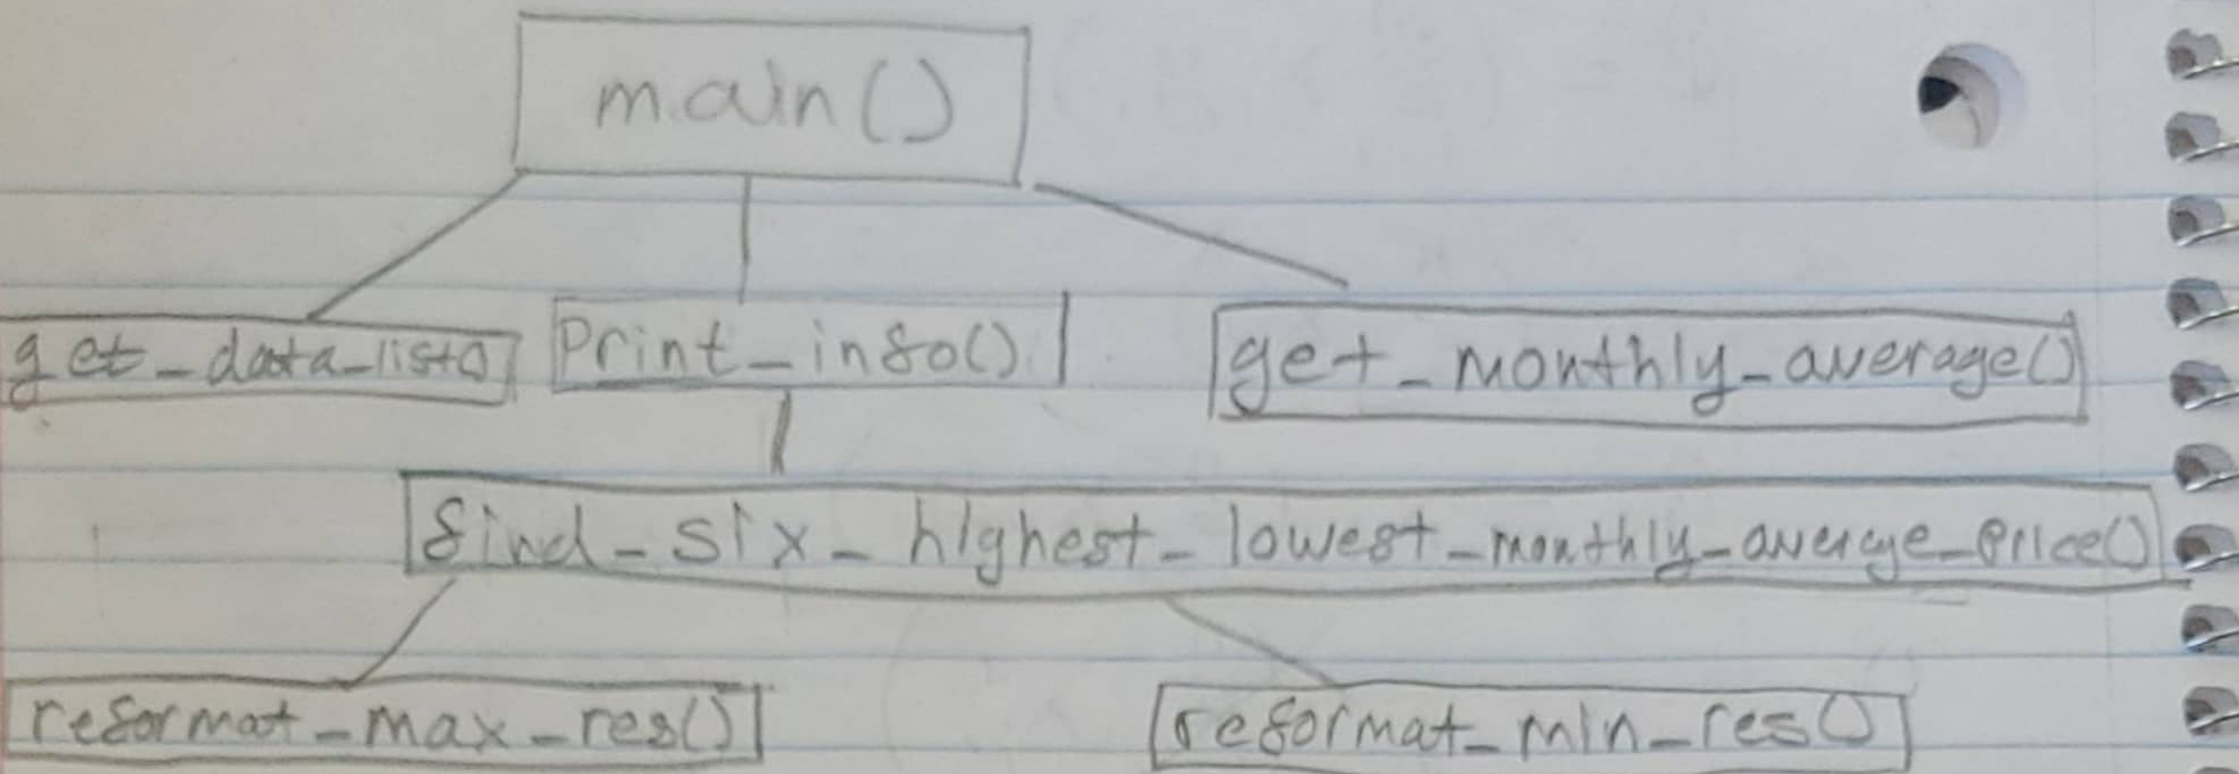 main()
get_data_list()
Print_info()
get_monthly_average()
find_six_highest_lowest_monthly_average_price()
reformat_max_res()
reformat_min_res()